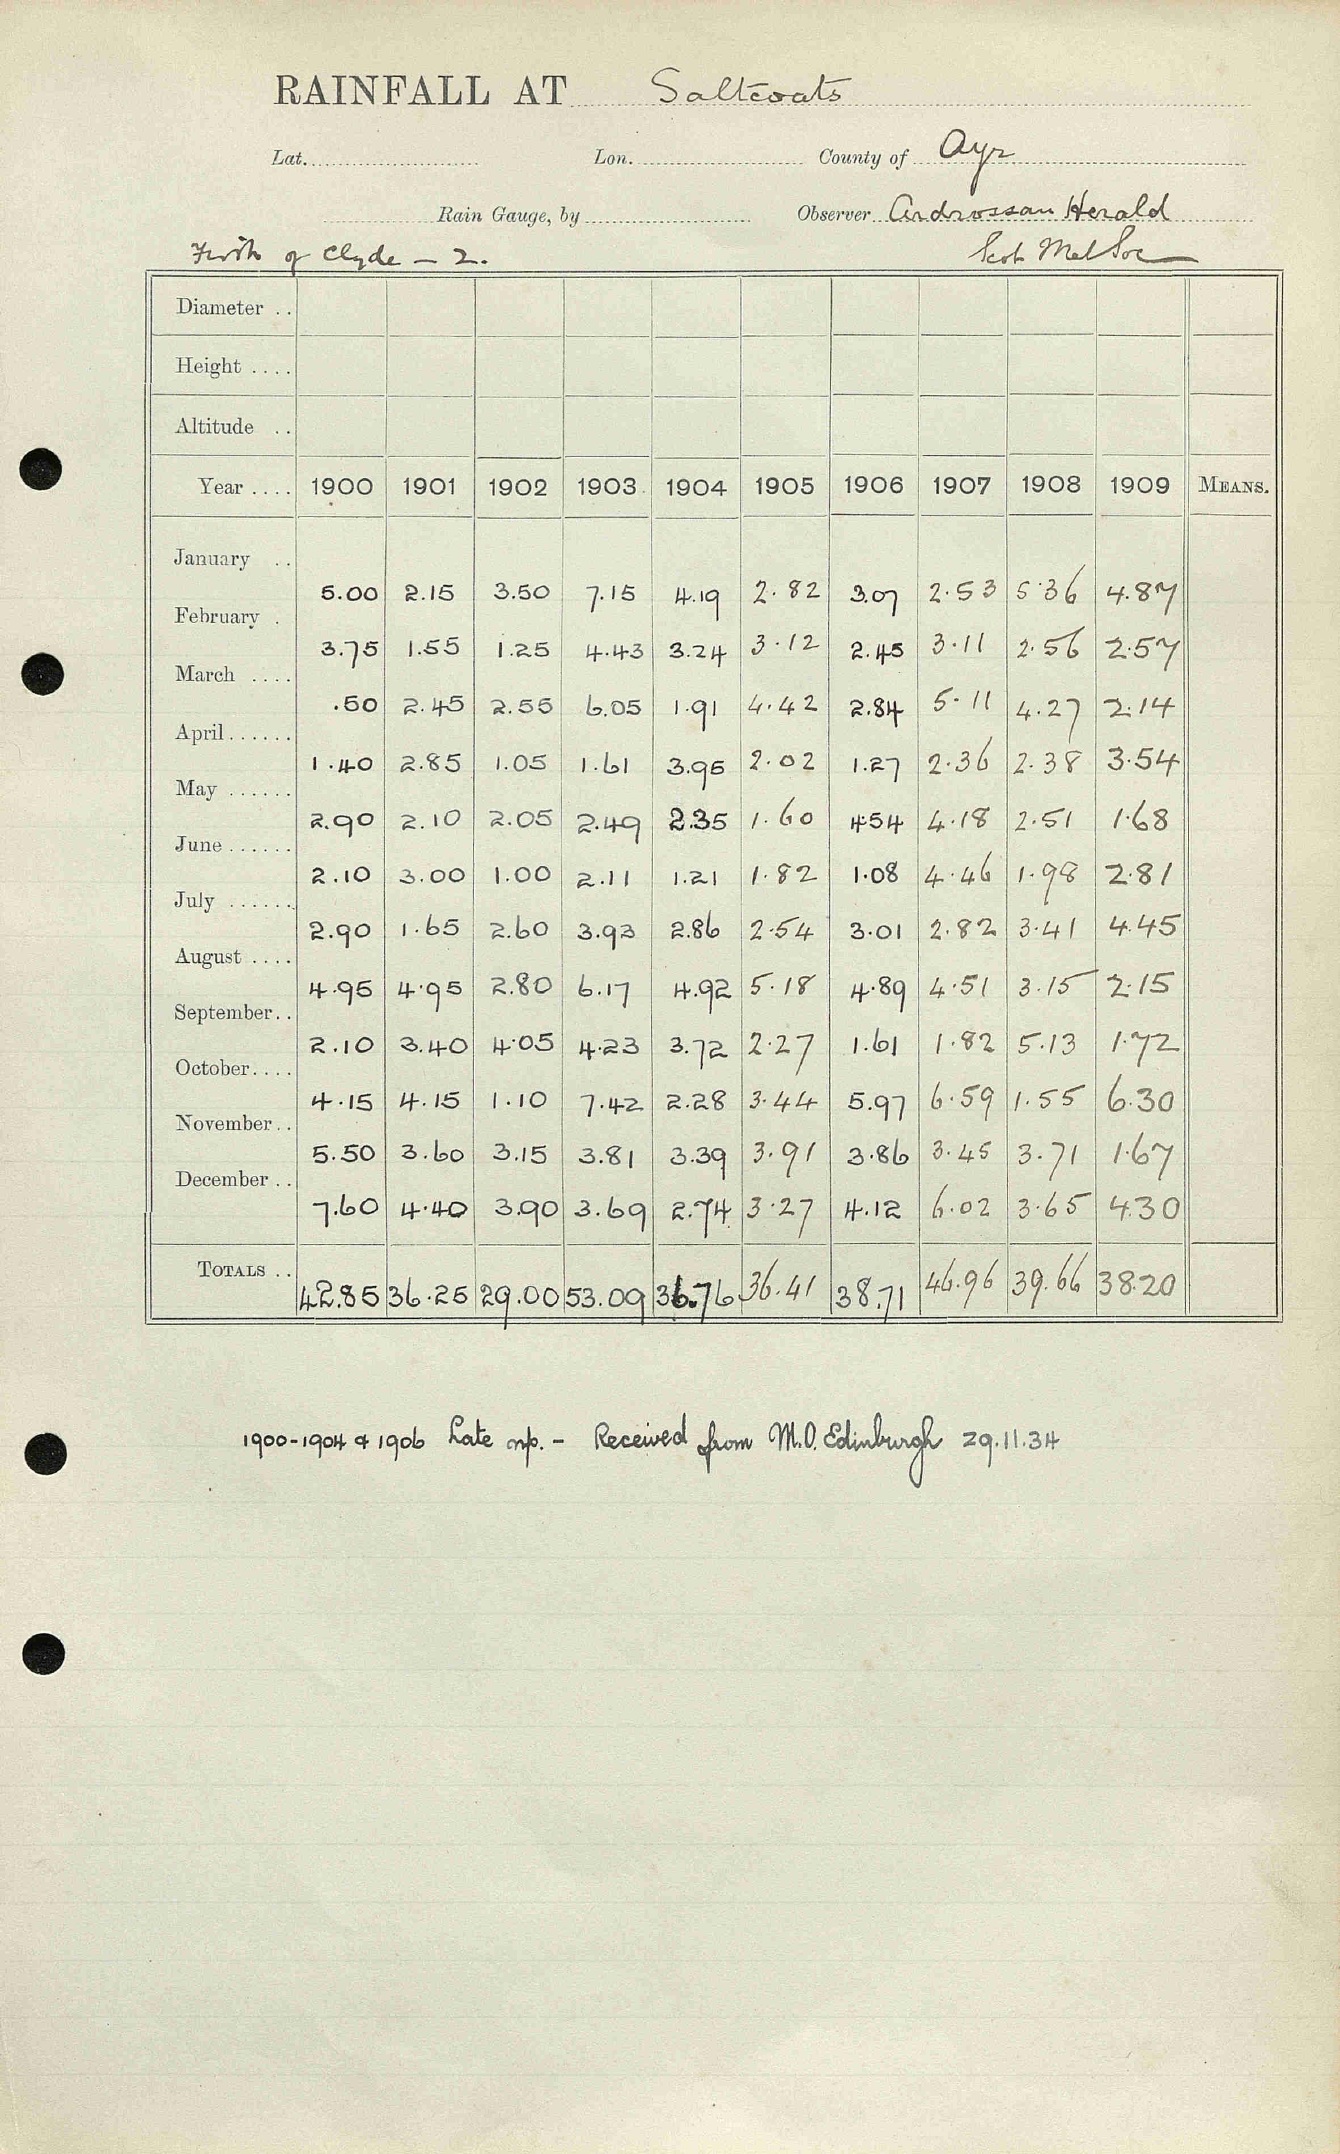 RAINFALL AT Saltcoats
Lat. Lon. County of Ayr
Rain Gauge, by Observer Ardrossan Herald
Firth of Clyde – 2. Scot Met Soc
Diameter ..
Height ....
Altitude ..
Year .... 1900 1901 1902 1903 1904 1905 1906 1907 1908 1909 MEANS.
January ..
5.00 2.15 3.50 7.15 4.19 2.82 3.07 2.53 5.36 4.87
February .
3.75 1.55 1.25 4.43 3.24 3.12 2.45 3.11 2.56 2.57
March ....
.50 2.45 2.55 6.05 1.91 4.42 2.84 5.11 4.27 2.14
April......
1.40 2.85 1.05 1.61 3.95 2.02 1.27 2.36 2.38 3.54
May ......
2.90 2.10 2.05 2.49 2.35 1.60 4.54 4.18 2.51 1.68
June ......
2.10 3.00 1.00 2.11 1.21 1.82 1.08 4.46 1.98 2.81
July ......
2.90 1.65 2.60 3.93 2.86 2.54 3.01 2.82 3.41 4.45
August ....
4.95 4.95 2.80 6.17 4.92 5.18 4.89 4.51 3.15 2.15
September..
2.10 3.40 4.05 4.23 3.72 2.27 1.61 1.82 5.13 1.72
October....
4.15 4.15 1.10 7.42 2.28 3.44 5.97 6.59 1.55 6.30
November..
5.50 3.60 3.15 3.81 3.39 3.91 3.86 3.45 3.71 1.67
December ..
7.60 4.40 3.90 3.69 2.74 3.27 4.12 6.02 3.65 4.30
TOTALS .. 42.85 36.25 29.00 53.09 36.76 36.41 38.71 46.96 39.66 38.20
1900-1904 & 1906 Late mp. – Received from M.O. Edinburgh 29.11.34